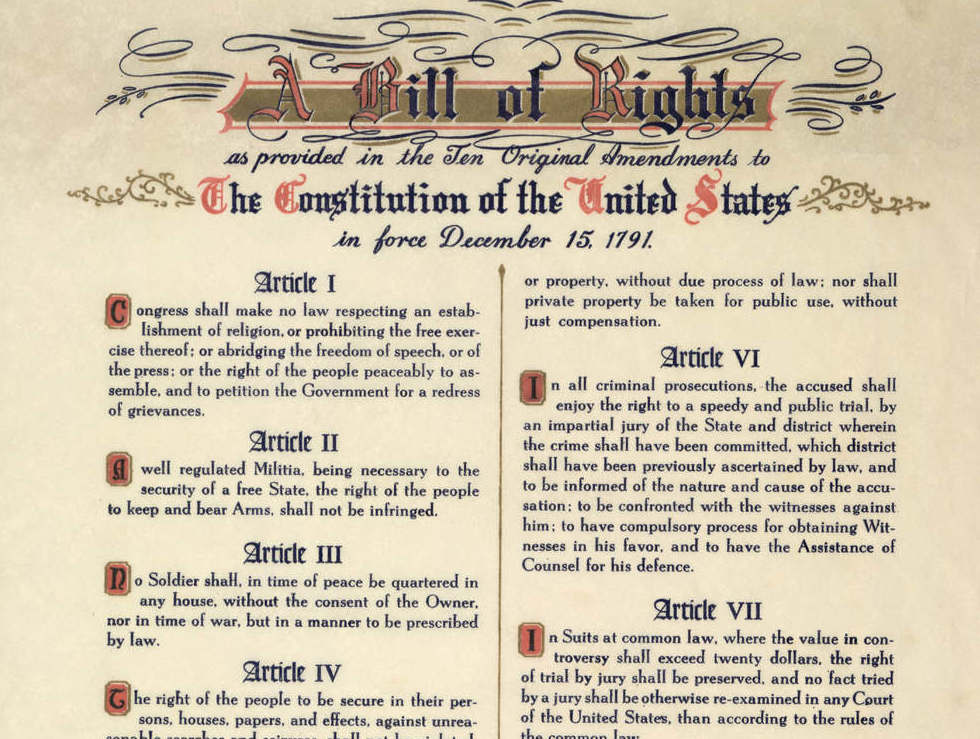 A Bill of Rights
as provided in the Ten Original Amendments to
The Constitution of the United States
in force December 15, 1791.
Article I
Congress shall make no law respecting an estab-
lishment of religion, or prohibiting the free exer-
cise thereof; or abridging the freedom of speech, or of
the press; or the right of the people peaceably to as-
semble, and to petition the Government for a redress
of grievances.
Article II
A well regulated Militia, being necessary to the
security of a free State, the right of the people
to keep and bear Arms, shall not be infringed.
Article III
No Soldier shall, in time of peace be quartered in
any house, without the consent of the Owner,
nor in time of war, but in a manner to be prescribed
by law.
Article IV
The right of the people to be secure in their per-
sons, houses, papers, and effects, against unrea-
sonable searches and seizures, shall not be violated,
or property, without due process of law; nor shall
private property be taken for public use, without
just compensation.
Article VI
In all criminal prosecutions, the accused shall
enjoy the right to a speedy and public trial, by
an impartial jury of the State and district wherein
the crime shall have been committed, which district
shall have been previously ascertained by law, and
to be informed of the nature and cause of the accu-
sation; to be confronted with the witnesses against
him; to have compulsory process for obtaining Wit-
nesses in his favor, and to have the Assistance of
Counsel for his defence.
Article VII
In Suits at common law, where the value in con-
troversy shall exceed twenty dollars, the right
of trial by jury shall be preserved, and no fact tried
by a jury shall be otherwise re-examined in any Court
of the United States, than according to the rules of
the common law.